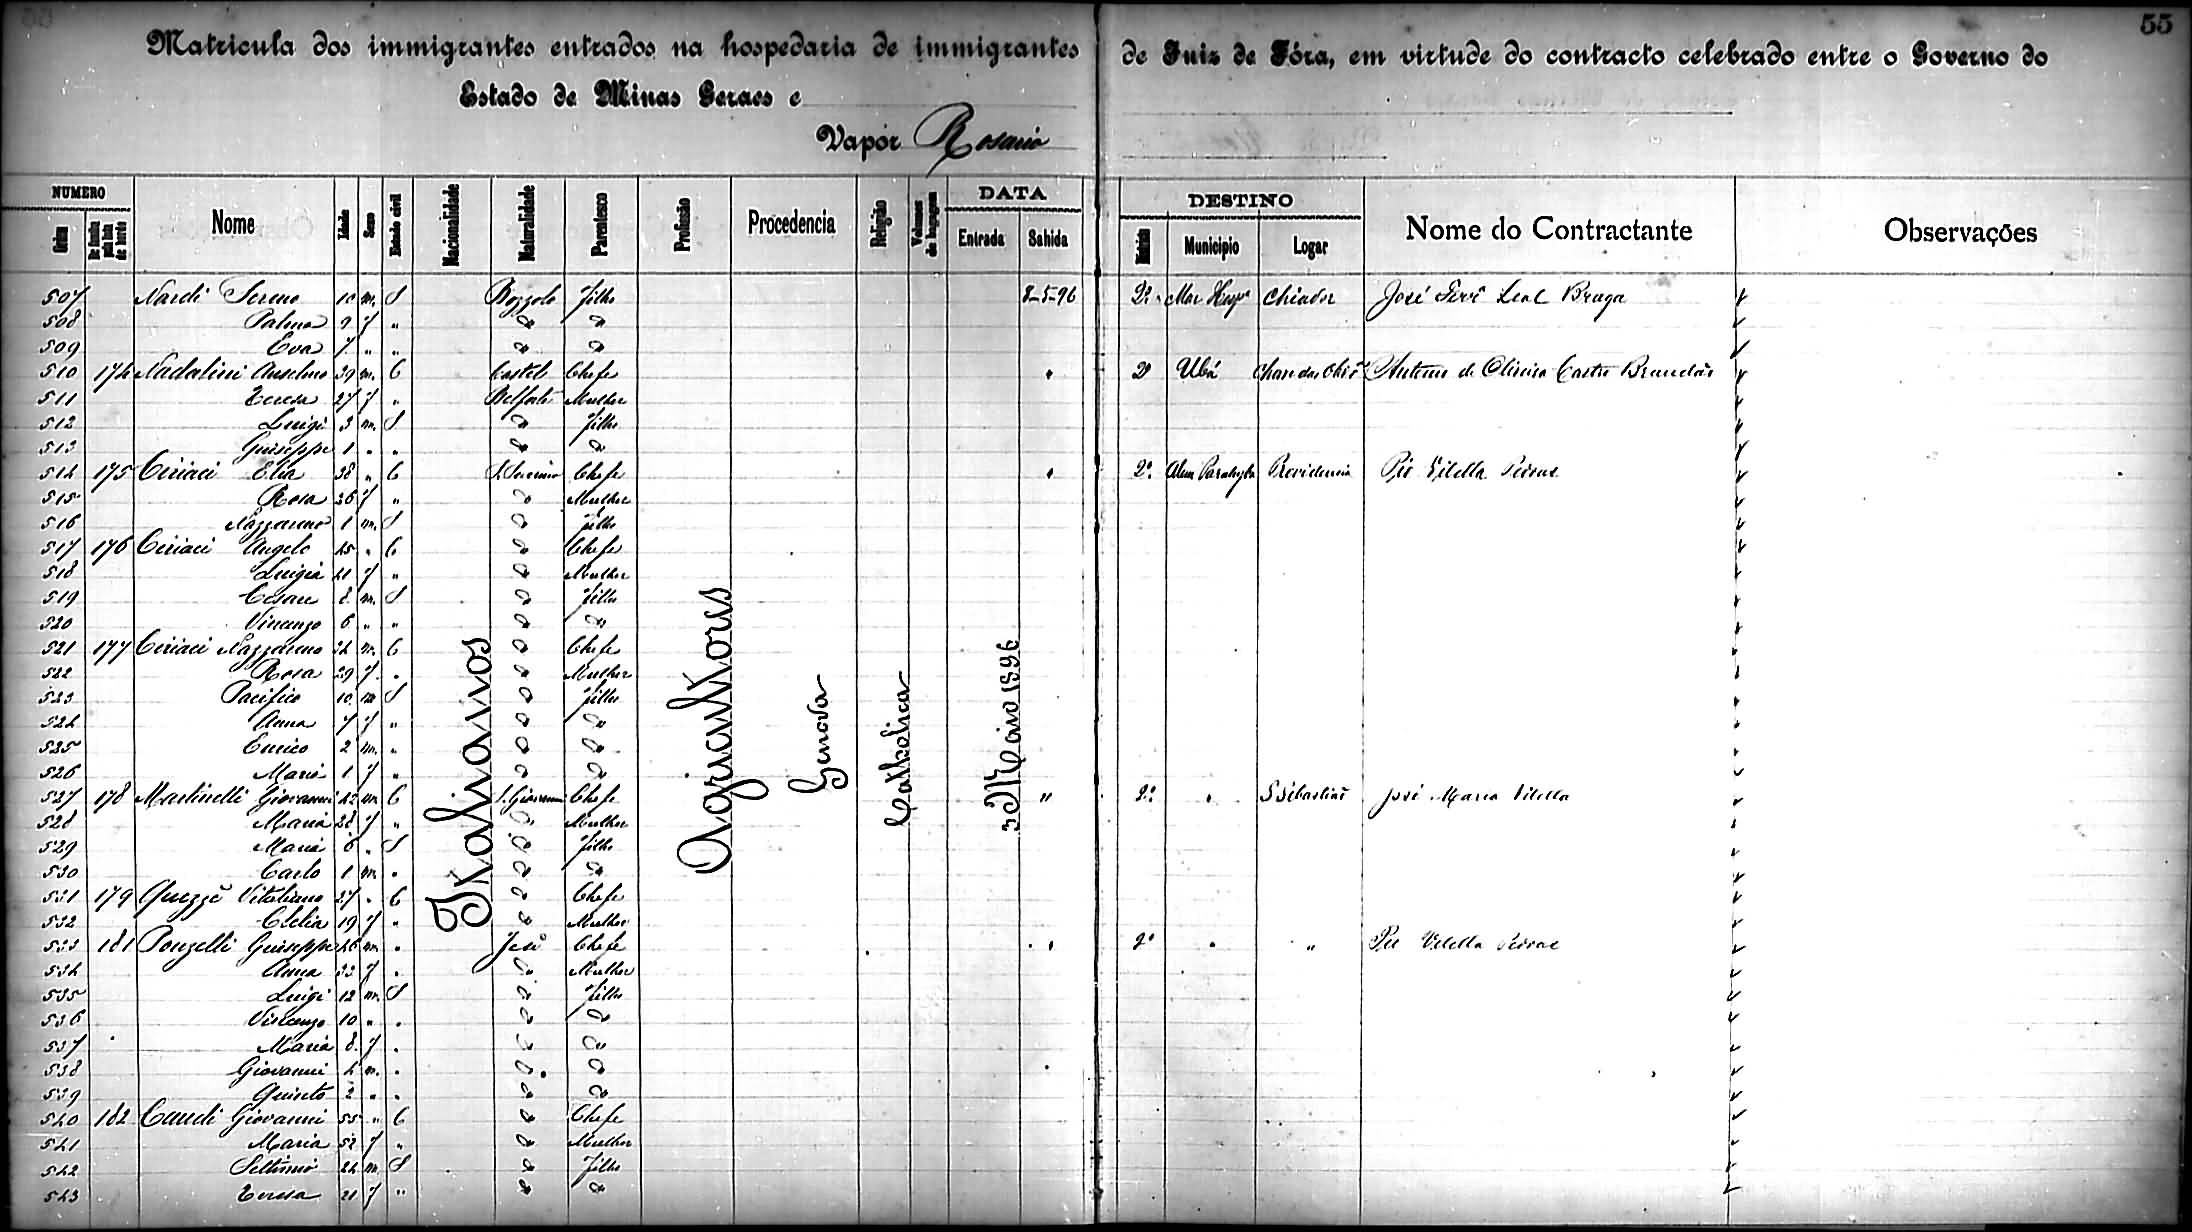 55
Matricula dos immigrantes entrados na hospedaria de immigrantes de Juiz de Fóra, em virtude do contracto celebrado entre o Governo do
Estado de Minas Geraes e
Vapor Rosario
NUMERO DATA DESTINO
Ordem Nome Idade Sexo Estado civil Nacionalidade Naturalidade Parentesco Profissão Procedencia Religião Volumes de bagagem Entrada Sahida Municipio Logar Nome do Contractante Observações
Italianos
Agricultores
Genova
Catholica
3 Maio 1896
507 Nardi Sereno 10 m. S Bozzolo Filho 8-5-96 2ª Mar Hesp. Chiador José Leal Braga
508 Palma 9 f "
509 Eva 7 " "
510 174 Nadalini Anselmo 39 m. C Castel Chefe " 2ª Ubá Antonio de Oliveira Castro Brandão
511 Teresa 27 f " Belforte Mulher
512 Luigi 3 m. S " Filho
513 Guiseppe 1 " " " "
514 175 Ciriaci Elia 38 " C S. Severino Chefe " 2ª Alem Parahyba Providencia Pio Vilella Pedras
515 Rosa 26 f " " Mulher
516 Nazzareno 1 m. S " Filho
517 176 Ciriaci Angelo 45 " C " Chefe
518 Luigia 41 f " " Mulher
519 Cesare 8 m. S " Filho
520 Vincenzo 6 " " " "
521 177 Ciriaci Nazzareno 34 m. C " Chefe
522 Rosa 29 f. " " Mulher
523 Pacifico 10 m S " Filho
524 Anna 7 f " " "
525 Enrico 2 m. " " "
526 Maria 1 f " " "
527 178 Martinelli Giovanni 42 m. C S. Giovanni Chefe " 2ª " S Sebastião José Maria Vilella
528 Maria 28 f " " Mulher
529 Maria 6 " S " Filho
530 Carlo 1 m. " " "
531 179 Vitaliano 27 " C " Chefe
532 Clelia 19 f " " Mulher
533 181 Ponzelli Guiseppe 46 m. " Jesi Chefe " 2ª " " Pio Vilella Pedras
534 Anna 33 f " " Mulher
535 Luigi 12 m. S " Filho
536 Vincenzo 10 " " " "
537 Maria 8 f " " "
538 Giovanni 4 m. " " "
539 Quinto 2 " " " "
540 182 Giovanni 55 " C " Chefe
541 Maria 52 f " " Mulher
542 Settimio 24 m. S " Filho
543 Teresa 21 f " " "